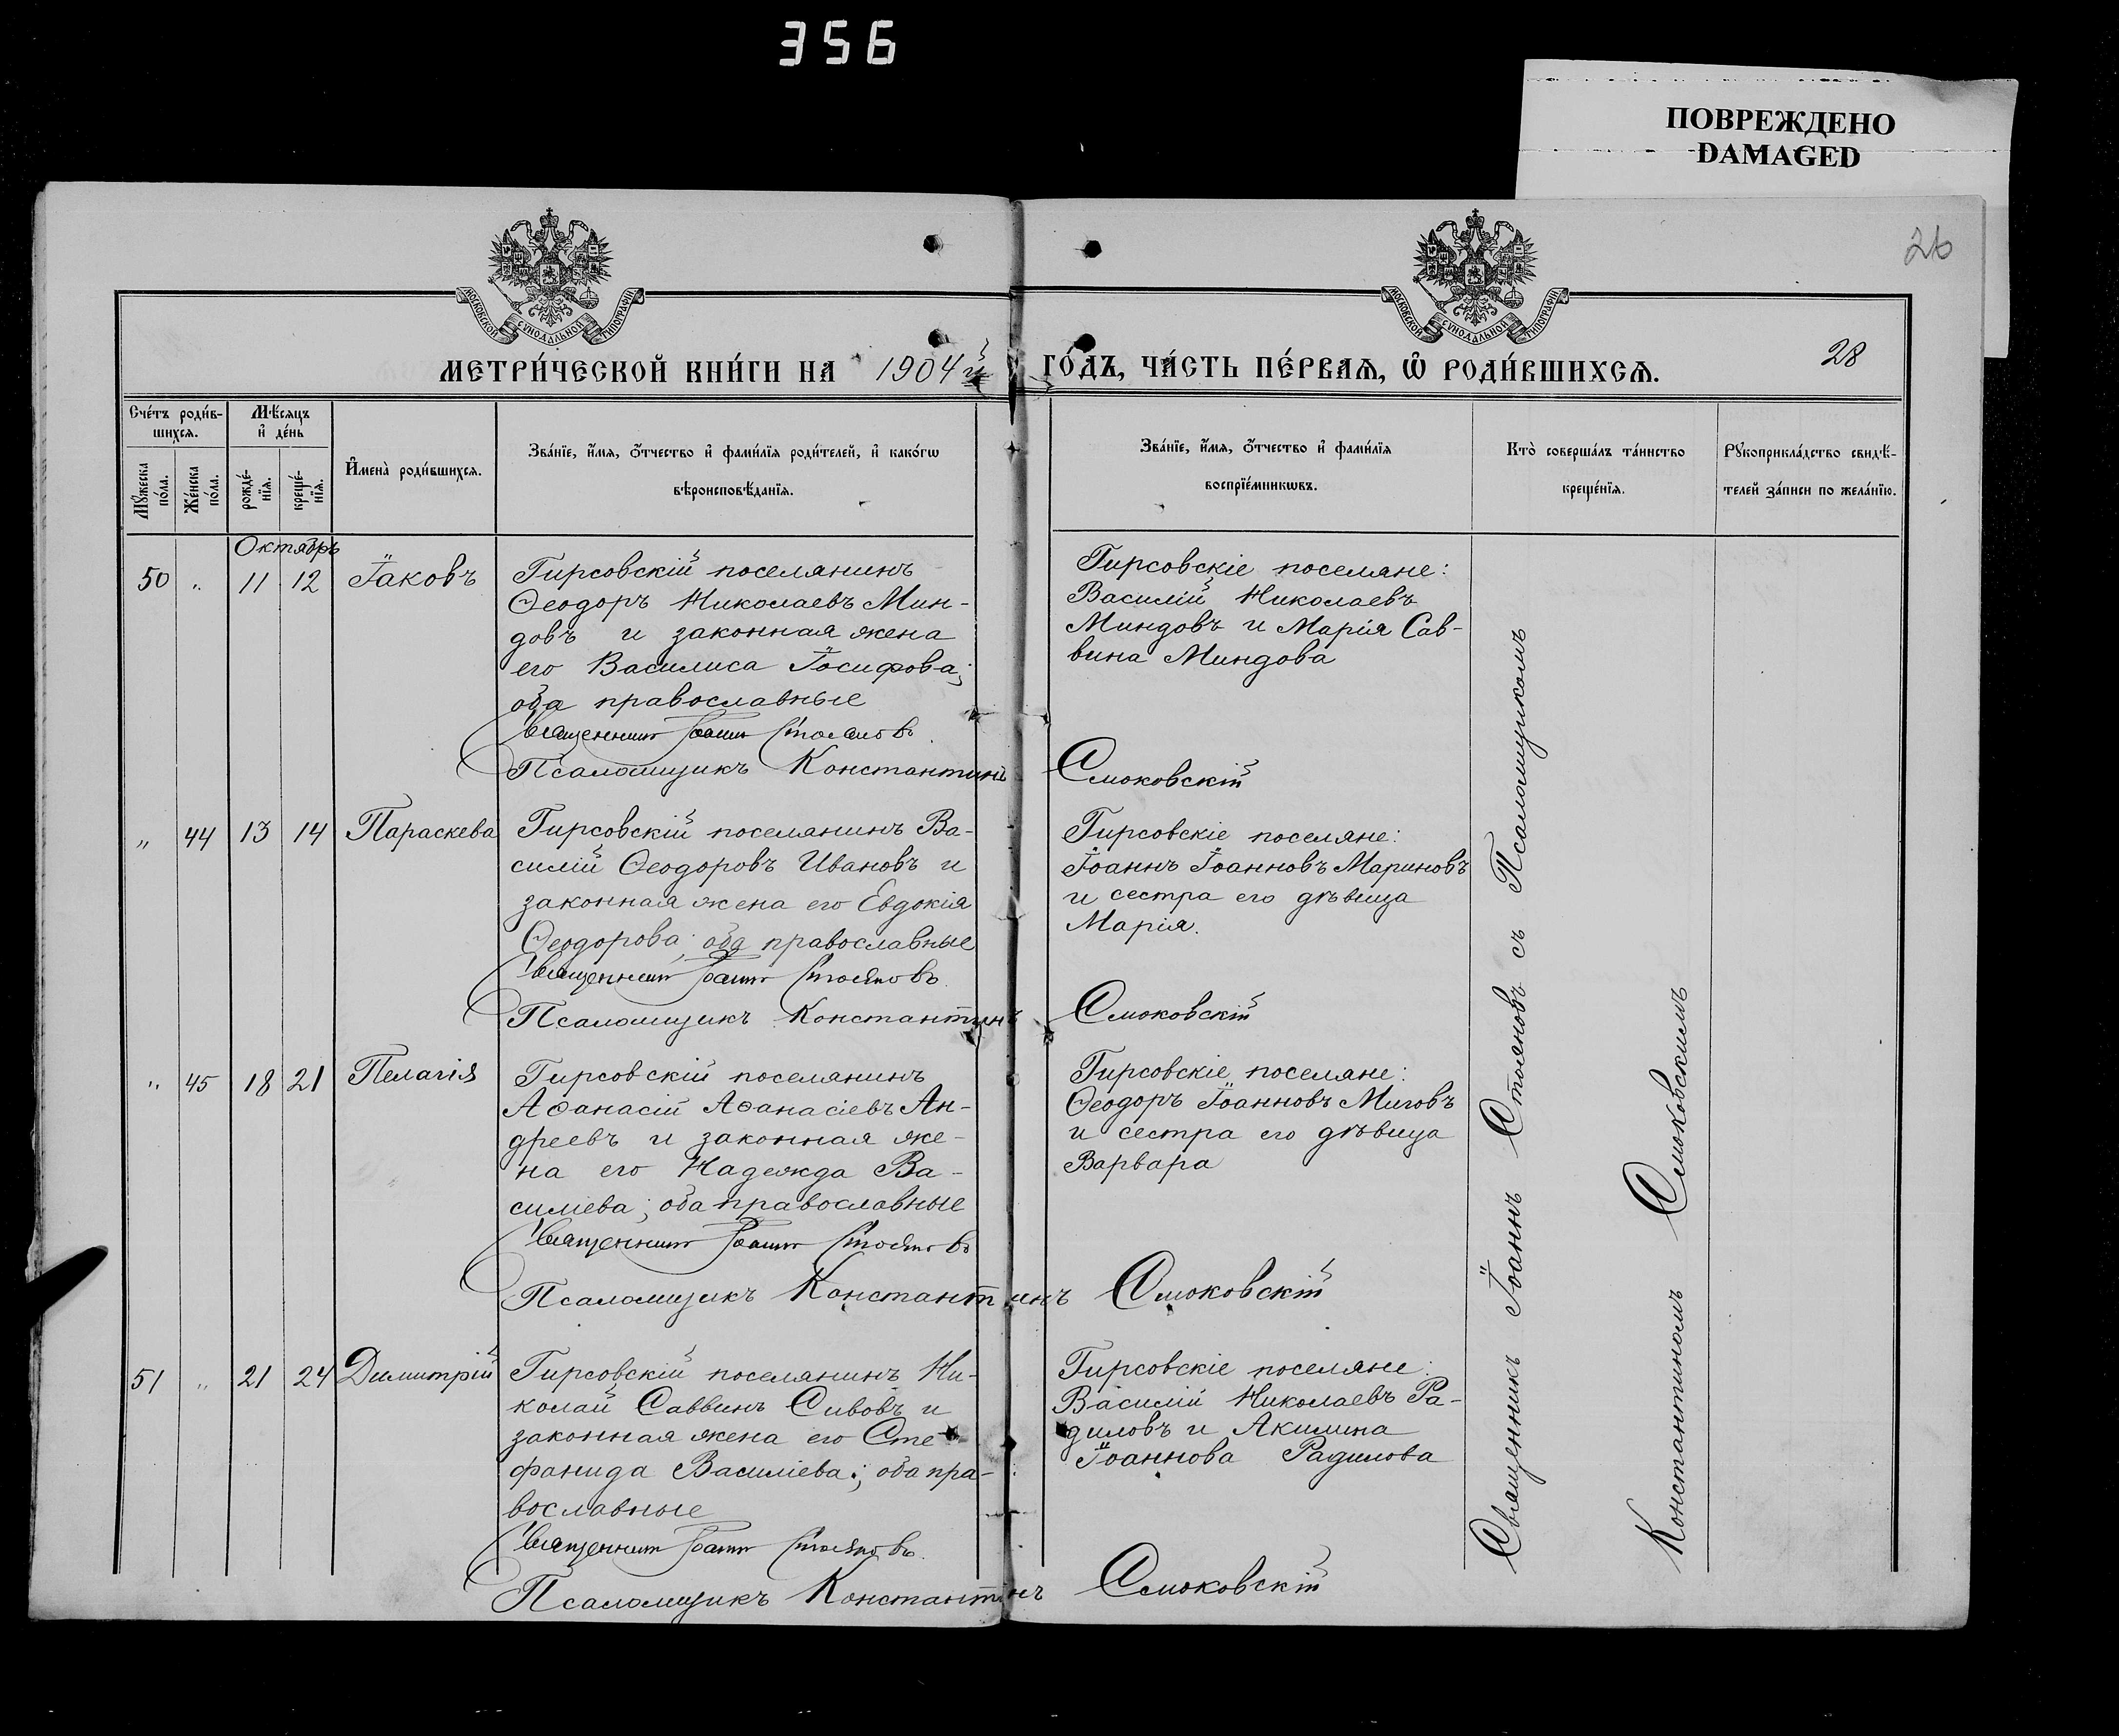 356
ПОВРЕЖДЕНО
DAMAGED
26
МОСКОВСКОЙ СѴНОДАЛЬНОЙ ТИПОГРАФІИ
МОСКОВСКОЙ СѴНОДАЛЬНОЙ ТИПОГРАФІИ
МЕТРИ́ЧЕСКОЙ КНИ́ГИ НА 1904й ГО́ДЪ, ЧА́СТЬ ПЕ́РВАѦ, Ѽ РОДИ́ВШИХСѦ.
28
Сче́тъ роди́в-
шихсѧ.
Мѣ́сѧцъ
и҆ де́нь
Мꙋ́жеска
по́ла.
Же́нска
по́ла.
рожде́-
нїѧ.
креще́-
нїѧ.
И҆мена̀ роди́вшихсѧ.
Зва́нїе, и҆́мѧ, ѻ҆́тчество и҆ фами́лїѧ роди́телей, и҆ како́гѡ
вѣроисповѣ́данїѧ.
Зва́нїе, и҆́мѧ, ѻ҆́тчество и҆ фами́лїѧ
воспрїе́мникѡвъ.
Кто̀ соверша́лъ та́инство
креще́нїѧ.
Рꙋкоприкла́дство свидѣ́-
телей за́писи по жела́нїю.
Октябрь
50 " 11 12 Іаковъ
Гирсовскій поселянинъ
Ѳеодоръ Николаевъ Мин-
довъ и законная жена
его Василиса Іосифова;
оба православные
Священникъ Іоаннъ Стояновъ
Псаломщикъ Константинъ Смоковскій
Гирсовскіе поселяне:
Василій Николаевъ
Миндовъ и Марія Сав-
вина Миндова
" 44 13 14 Параскева
Гирсовскій поселянинъ Ва-
силій Ѳеодоровъ Ивановъ и
законная жена его Евдокія
Ѳеодорова; оба православные
Священникъ Іоаннъ Стояновъ
Псаломщикъ Константинъ Смоковскій
Гирсовскіе поселяне:
Іоаннъ Іоанновъ Мариновъ
и сестра его дѣвица
Марія.
" 45 18 21 Пелагія
Гирсовскій поселянинъ
Аѳанасій Аѳанасіевъ Ан-
дреевъ и законная же-
на его Надежда Ва-
силіева; оба православные
Священникъ Іоаннъ Стояновъ
Псаломщикъ Константинъ Смоковскій
Гирсовскіе поселяне:
Ѳеодоръ Іоанновъ Миговъ
и сестра его дѣвица
Варвара
51 " 21 24 Димитрій
Гирсовскій поселянинъ Ни-
колай Саввинъ Сивовъ и
законная жена его Сте-
фанида Василіева; оба пра-
вославные
Священникъ Іоаннъ Стояновъ
Псаломщикъ Константинъ Смоковскій
Гирсовскіе поселяне:
Василій Николаевъ Ра-
диловъ и Акилина
Іоаннова Радилова
Священникъ Іоаннъ Стояновъ съ Псаломщикомъ
Константиномъ Смоковскимъ